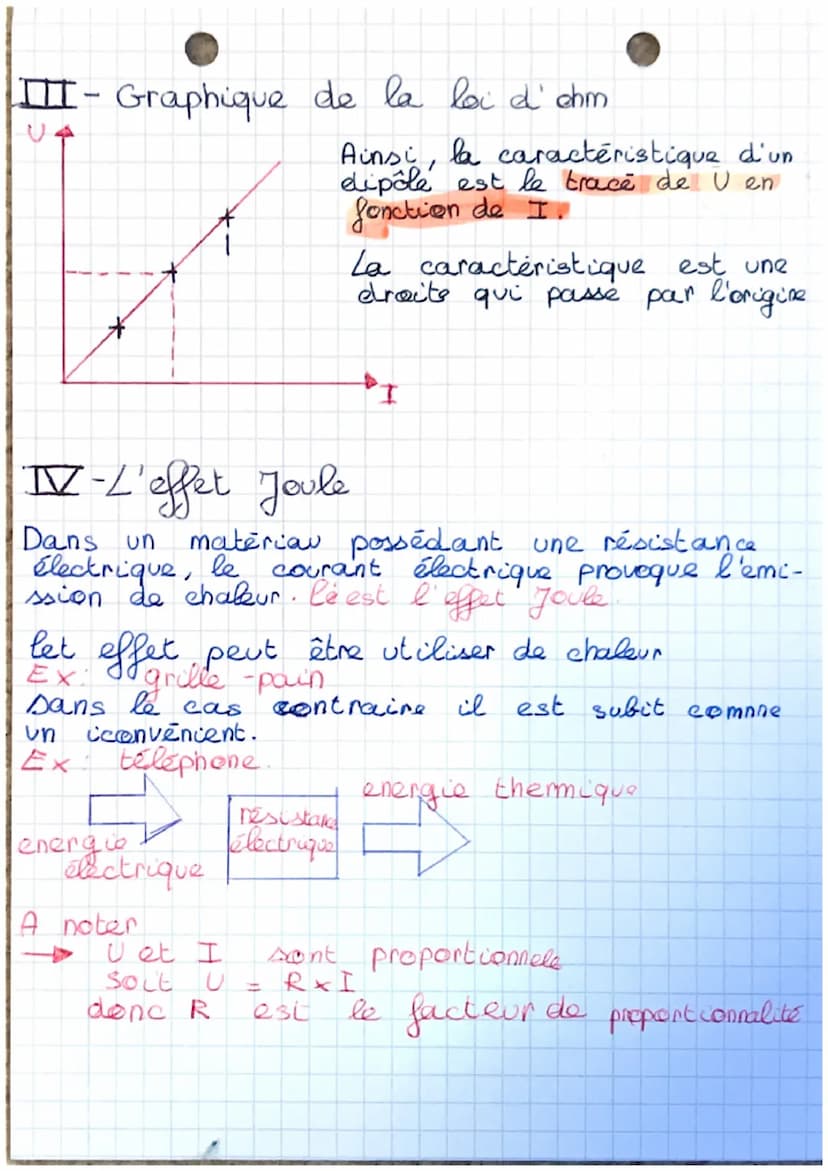 III - Graphique de la loi d'ohm
U
Ainsi, la caractéristique d'un
dipôle est le tracé de U en
fonction de I.
La caractéristique est une
droite qui passe par l'origine
I
IV - L'effet Joule
Dans un matériau possédant une résistance
électrique, le courant électrique provoque l'émi-
ssion de chaleur. Cé est l'effet Joule.
Cet effet peut être utiliser de chaleur
Ex: grille-pain
Dans le cas contraire il est subit comme
un iconvénient.
Ex: téléphone.
energie thermique
résistance
électrique
energie
électrique
A noter
→ U et I sont proportionnels
soit U = R x I
donc R est le facteur de proportionnalité